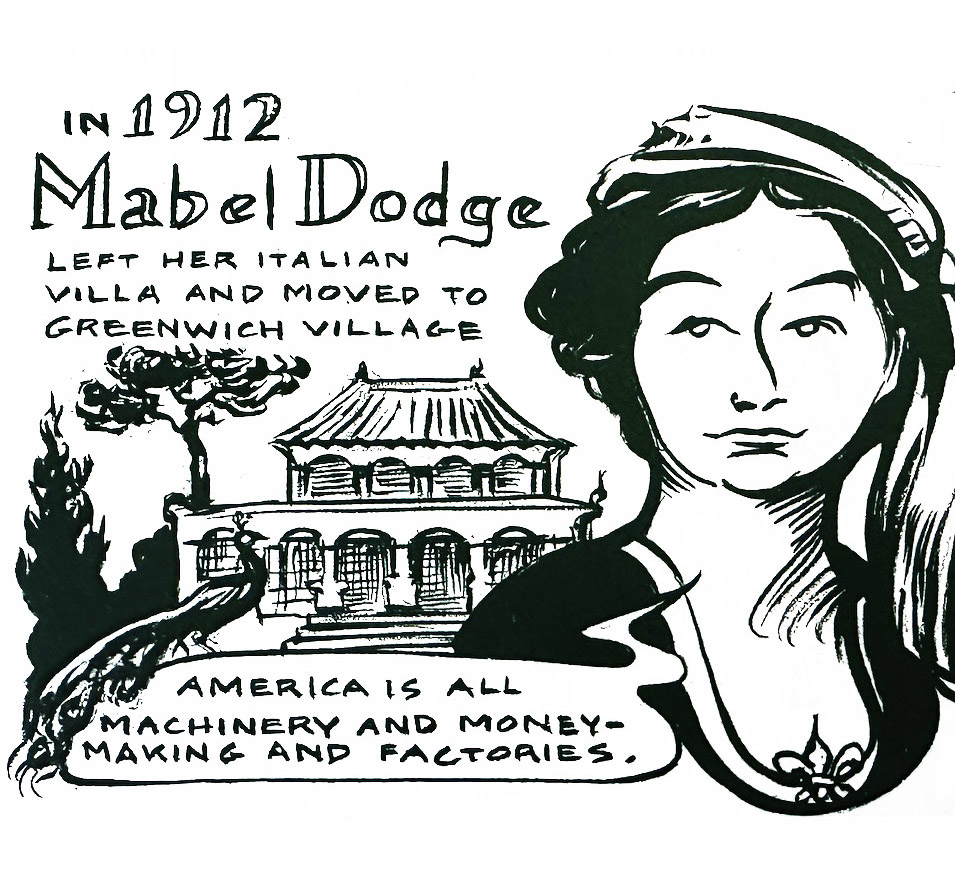 IN 1912
Mabel Dodge
LEFT HER ITALIAN
VILLA AND MOVED TO
GREENWICH VILLAGE
AMERICA IS ALL
MACHINERY AND MONEY-
MAKING AND FACTORIES.